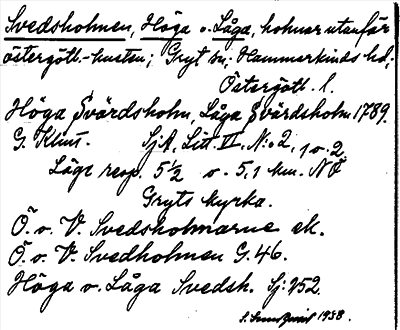 Svedsholmen, Höga o. Låga, holmar utanför
östergötl.-kusten; Gryt sn; Hammarkinds hd;
Östergötl. l.
Höga Svärdsholm, Låga Svärdsholm 1789.
G. Klint. SjA, Litt. VI, N:o 2, 1 o. 2.
Läge resp. 5½ o. 5,1 km. NÖ
Gryts kyrka.
Ö. o. V. Svedsholmarne ek.
Ö. o. V. Svedholmen G. 46.
Höga o. Låga Svedsh. Sj: 252.
1938.